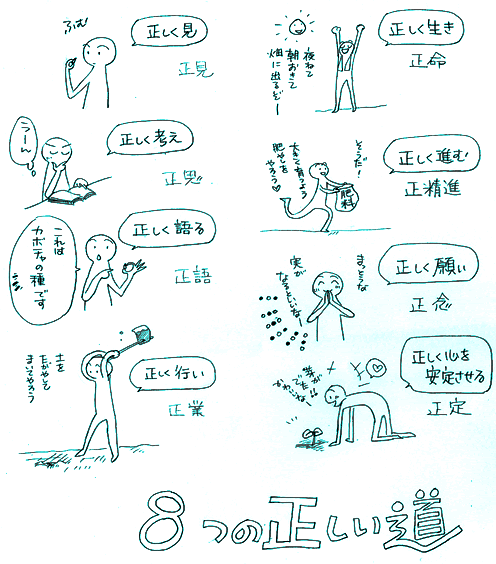 ふむ
正しく見
正見
うーん
正しく考え
正思
これは
カボチャの種です
正しく語る
正語
土を
たがやして
まいてやろう
正しく行い
正業
夜ねて
朝おきて
畑に出るぞー
正しく生き
正命
そうだ!
大きく育つよう
肥やしを
やろう♡
肥料
正しく進む
正精進
まっとうな
実が
なるといいなー
正しく願い
正念
芽が
でた
かわいいね!!
正しく心を
安定させる
正定
8つの正しい道